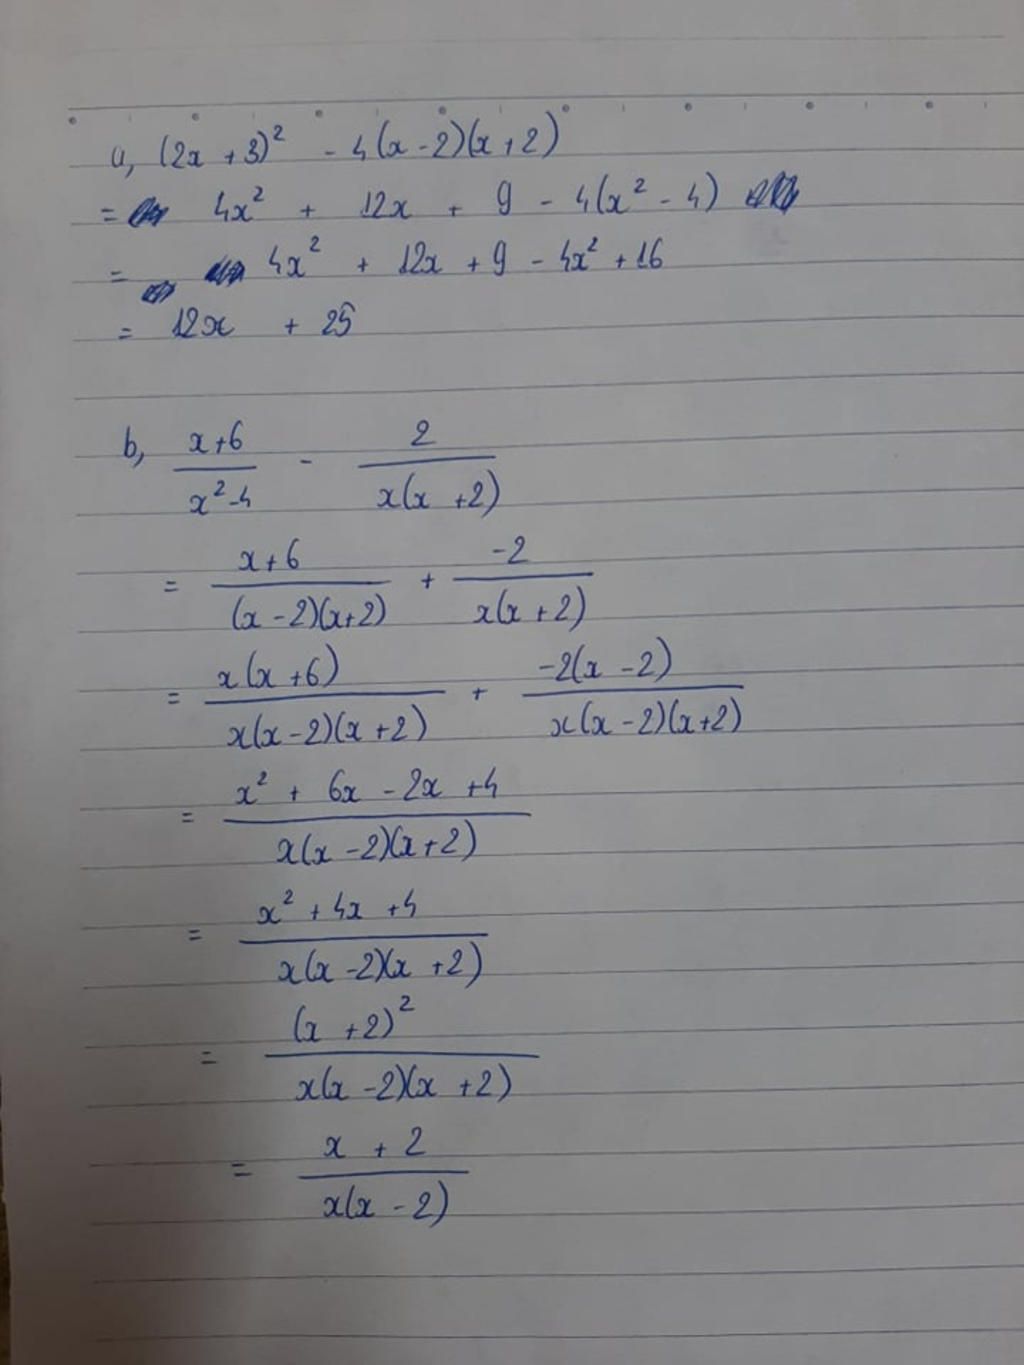 a, (2x + 3)² - 4(x - 2)(x + 2)
= 4x² + 12x + 9 - 4(x² - 4)
= 4x² + 12x + 9 - 4x² + 16
= 12x + 25
b, (x+6)/(x²-4) - 2/(x(x+2))
= (x+6)/((x-2)(x+2)) + (-2)/(x(x+2))
= (x(x+6))/(x(x-2)(x+2)) + (-2(x-2))/(x(x-2)(x+2))
= (x² + 6x - 2x + 4)/(x(x-2)(x+2))
= (x² + 4x + 4)/(x(x-2)(x+2))
= (x+2)²/(x(x-2)(x+2))
= (x+2)/(x(x-2))